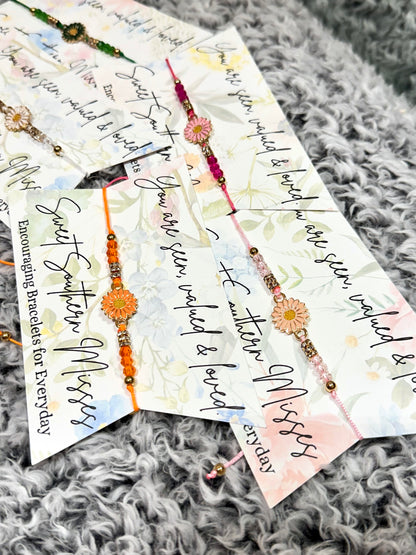 You are seen, valued & loved
You are seen, valued & loved
Sweet Southern Misses
Sweet Southern
You are seen, valued & loved
You are seen, valued & loved
Sweet Southern Misses
Encouraging Bracelets for Everyday
You are seen, valued & loved
t Southern Misses
Everyday